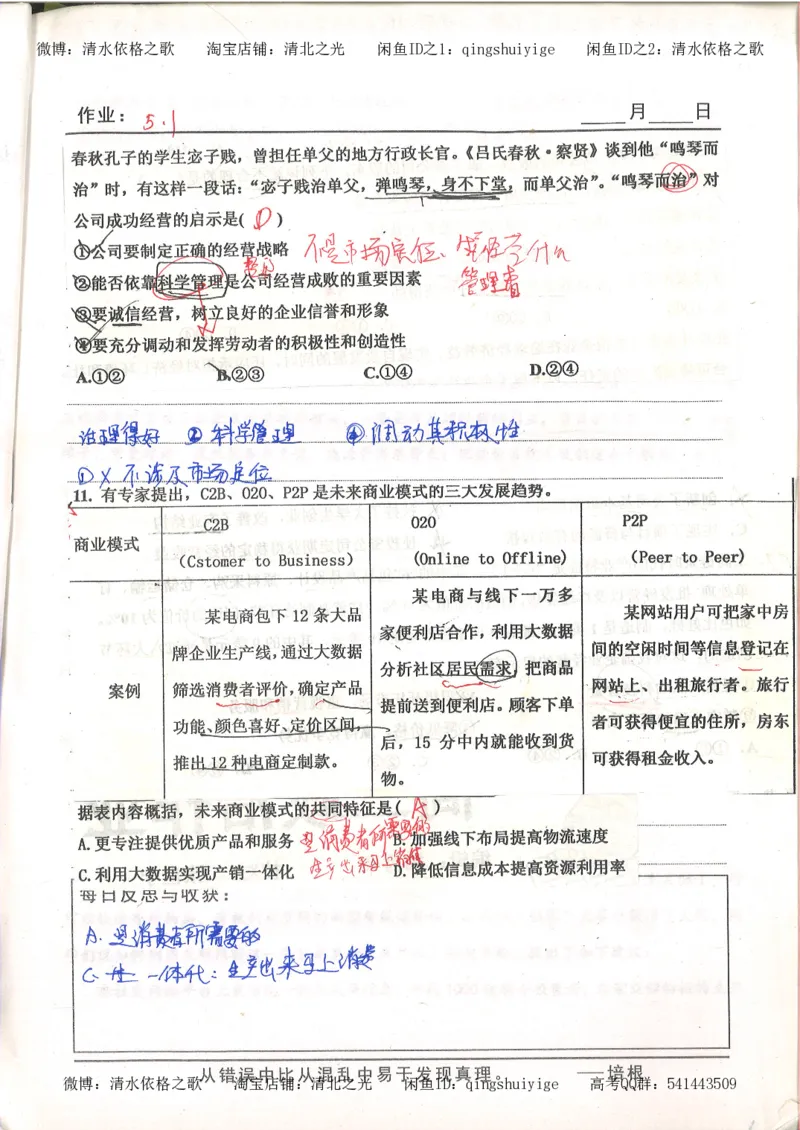 微博：清水依格之歌 淘宝店铺：清北之光 闲鱼ID之1：qingshuiyige 闲鱼ID之2：清水依格之歌
作业： 5.1 ____月____日
春秋孔子的学生宓子贱，曾担任单父的地方行政长官。《吕氏春秋·察贤》谈到他“鸣琴而
治”时，有这样一段话：“宓子贱治单父，弹鸣琴，身不下堂，而单父治”。“鸣琴而治”对
公司成功经营的启示是( D )
①公司要制定正确的经营战略 不是市场定位、
②能否依靠科学管理是公司经营成败的重要因素 管理者
③要诚信经营，树立良好的企业信誉和形象
④要充分调动和发挥劳动者的积极性和创造性
A.①② B.②③ C.①④ D.②④
治理得好 ②科学管理 ④调动其积极性
①X 不涉及市场定位
11. 有专家提出，C2B、O2O、P2P 是未来商业模式的三大发展趋势。
商业模式
C2B
(Cstomer to Business)
O2O
(Online to Offline)
P2P
(Peer to Peer)
案例
某电商包下 12 条大品
牌企业生产线，通过大数据
筛选消费者评价，确定产品
功能、颜色喜好、定价区间，
推出 12 种电商定制款。
某电商与线下一万多
家便利店合作，利用大数据
分析社区居民需求，把商品
提前送到便利店。顾客下单
后，15 分中内就能收到货
物。
某网站用户可把家中房
间的空闲时间等信息登记在
网站上、出租旅行者。旅行
者可获得便宜的住所，房东
可获得租金收入。
据表内容概括，未来商业模式的共同特征是( A )
A.更专注提供优质产品和服务 是消费者所需要的 B.加强线下布局提高物流速度
C.利用大数据实现产销一体化 生产出来马上销售 D.降低信息成本提高资源利用率
每日反思与收获：
A. 是消费者所需要的
C. 一体化：生产出来马上消费
从错误中比从混乱中易于发现真理。 ——培根
微博：清水依格之歌 淘宝店铺：清北之光 闲鱼ID：qingshuiyige 高考QQ群：541443509